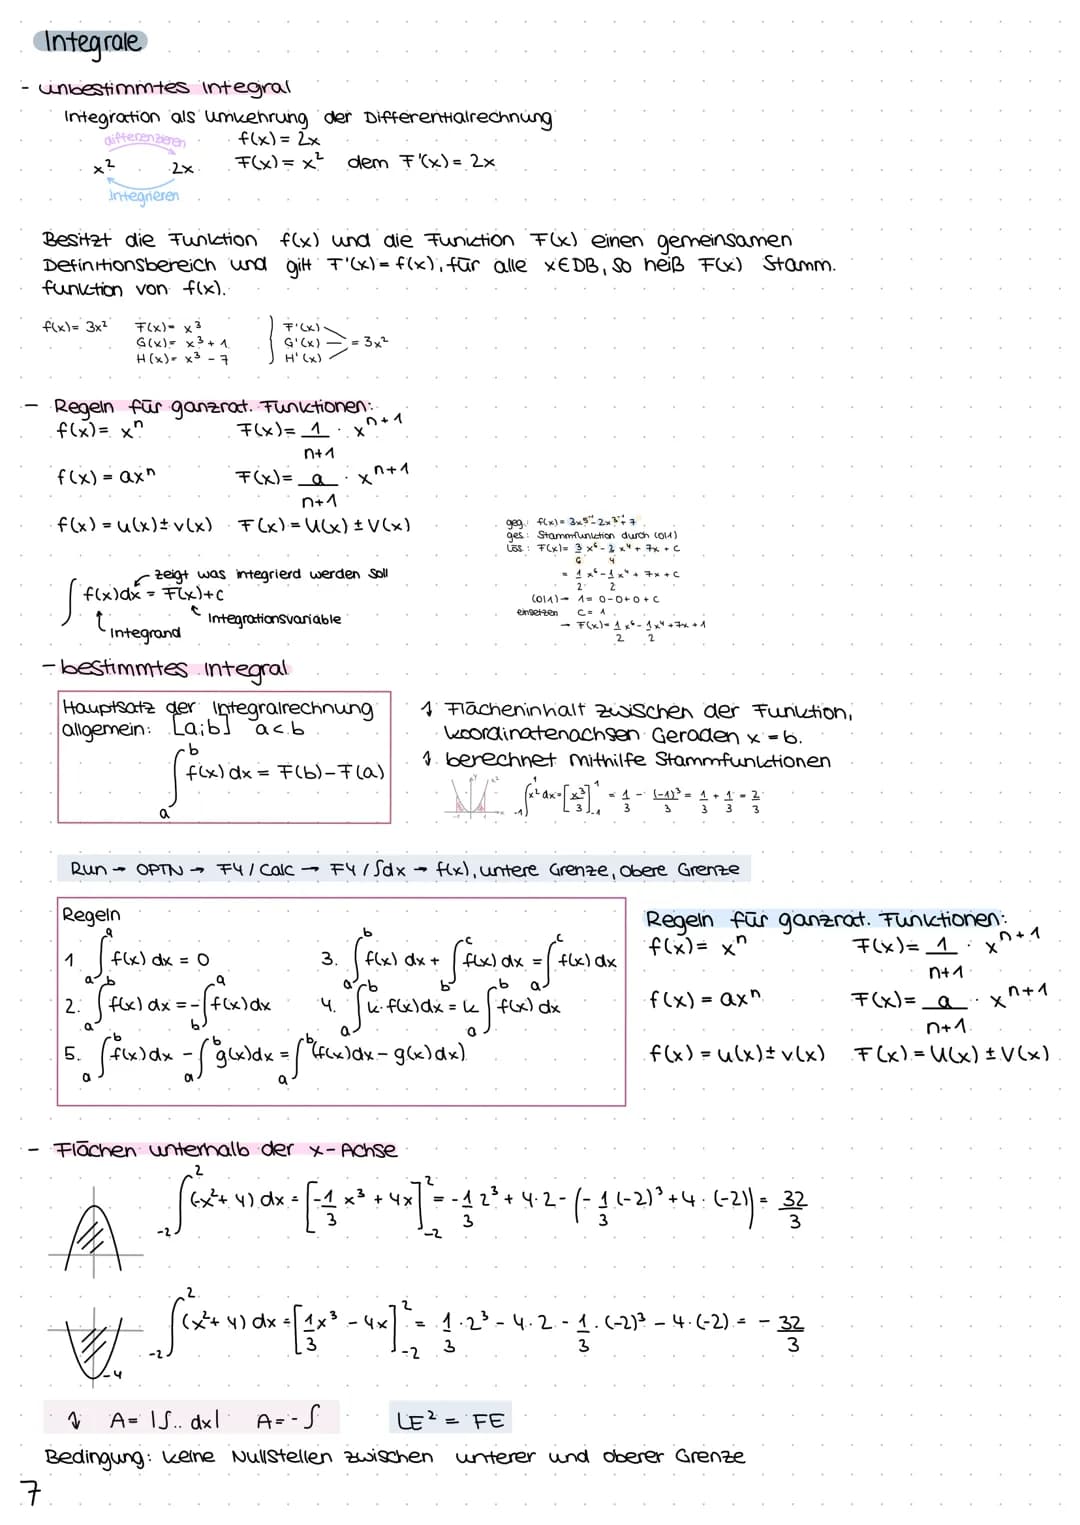 Integrale
- unbestimmtes Integral
Integration als Umkehrung der Differentialrechnung
differenzieren
f(x) = 2x
x² 2x
F(x) = x² dem F'(x) = 2x
Integrieren
Besitzt die Funktion f(x) und die Funktion F(x) einen gemeinsamen
Definitionsbereich und gilt F'(x) = f(x), für alle x∈DB, so heiß F(x) Stamm.
funktion von f(x).
f(x) = 3x² F(x) = x³ F'(x)
G(x) = x³ + 1 G'(x) = 3x²
H(x) = x³ - 7 H'(x)
- Regeln für ganzrat. Funktionen:
f(x) = xⁿ F(x) = 1/(n+1) · xⁿ⁺¹
f(x) = axⁿ F(x) = a/(n+1) · xⁿ⁺¹
f(x) = u(x) ± v(x) F(x) = U(x) ± V(x)
geg.: f(x) = 3x⁵ - 2x³ + 7
ges: Stammfunktion durch (0|1)
Lös: F(x) = 3/6 x⁶ - 2/4 x⁴ + 7x + c
= 1/2 x⁶ - 1/2 x⁴ + 7x + c
(0|1) → 1 = 0-0+0+c
einsetzen c = 1
→ F(x) = 1/2 x⁶ - 1/2 x⁴ + 7x + 1
zeigt was integrierd werden soll
∫ f(x)dx = F(x)+c
Integrand
Integrationsvariable
- bestimmtes Integral
Hauptsatz der Integralrechnung
allgemein: [a;b] a<b
∫ₐᵇ f(x) dx = F(b) - F(a)
Flächeninhalt zwischen der Funktion,
koordinatenachsen Geraden x = b.
berechnet mithilfe Stammfunktionen
∫₋₁¹ x² dx = [x³/3]₋₁¹ = 1/3 - (-1)³/3 = 1/3 + 1/3 = 2/3
Run → OPTN → F4 / Calc → F4 / ∫dx → f(x), untere Grenze, obere Grenze
Regeln
1 ∫ₐᵃ f(x) dx = 0
2. ∫ₐᵇ f(x) dx = - ∫_b^a f(x) dx
3. ∫ₐᵇ f(x) dx + ∫_b^c f(x) dx = ∫ₐᶜ f(x) dx
4. ∫ₐᵇ k·f(x) dx = k ∫ₐᵇ f(x) dx
5. ∫ₐᵇ f(x) dx - ∫ₐᵇ g(x) dx = ∫ₐᵇ (f(x) dx - g(x) dx)
Regeln für ganzrat. Funktionen:
f(x) = xⁿ F(x) = 1/(n+1) · xⁿ⁺¹
f(x) = axⁿ F(x) = a/(n+1) · xⁿ⁺¹
f(x) = u(x) ± v(x) F(x) = U(x) ± V(x)
- Flächen unterhalb der x-Achse
∫₋₂² (-x²+4) dx = [-1/3 x³ + 4x]₋₂² = -1/3 2³ + 4·2 - (-1/3 (-2)³ + 4·(-2)) = 32/3
∫₋₂² (x²+4) dx = [1/3 x³ - 4x]₋₂² = 1/3 · 2³ - 4·2 - 1/3 · (-2)³ - 4·(-2) = - 32/3
-4
A = |∫.. dx| A = -∫ LE² = FE
Bedingung: keine Nullstellen zwischen unterer und oberer Grenze
7